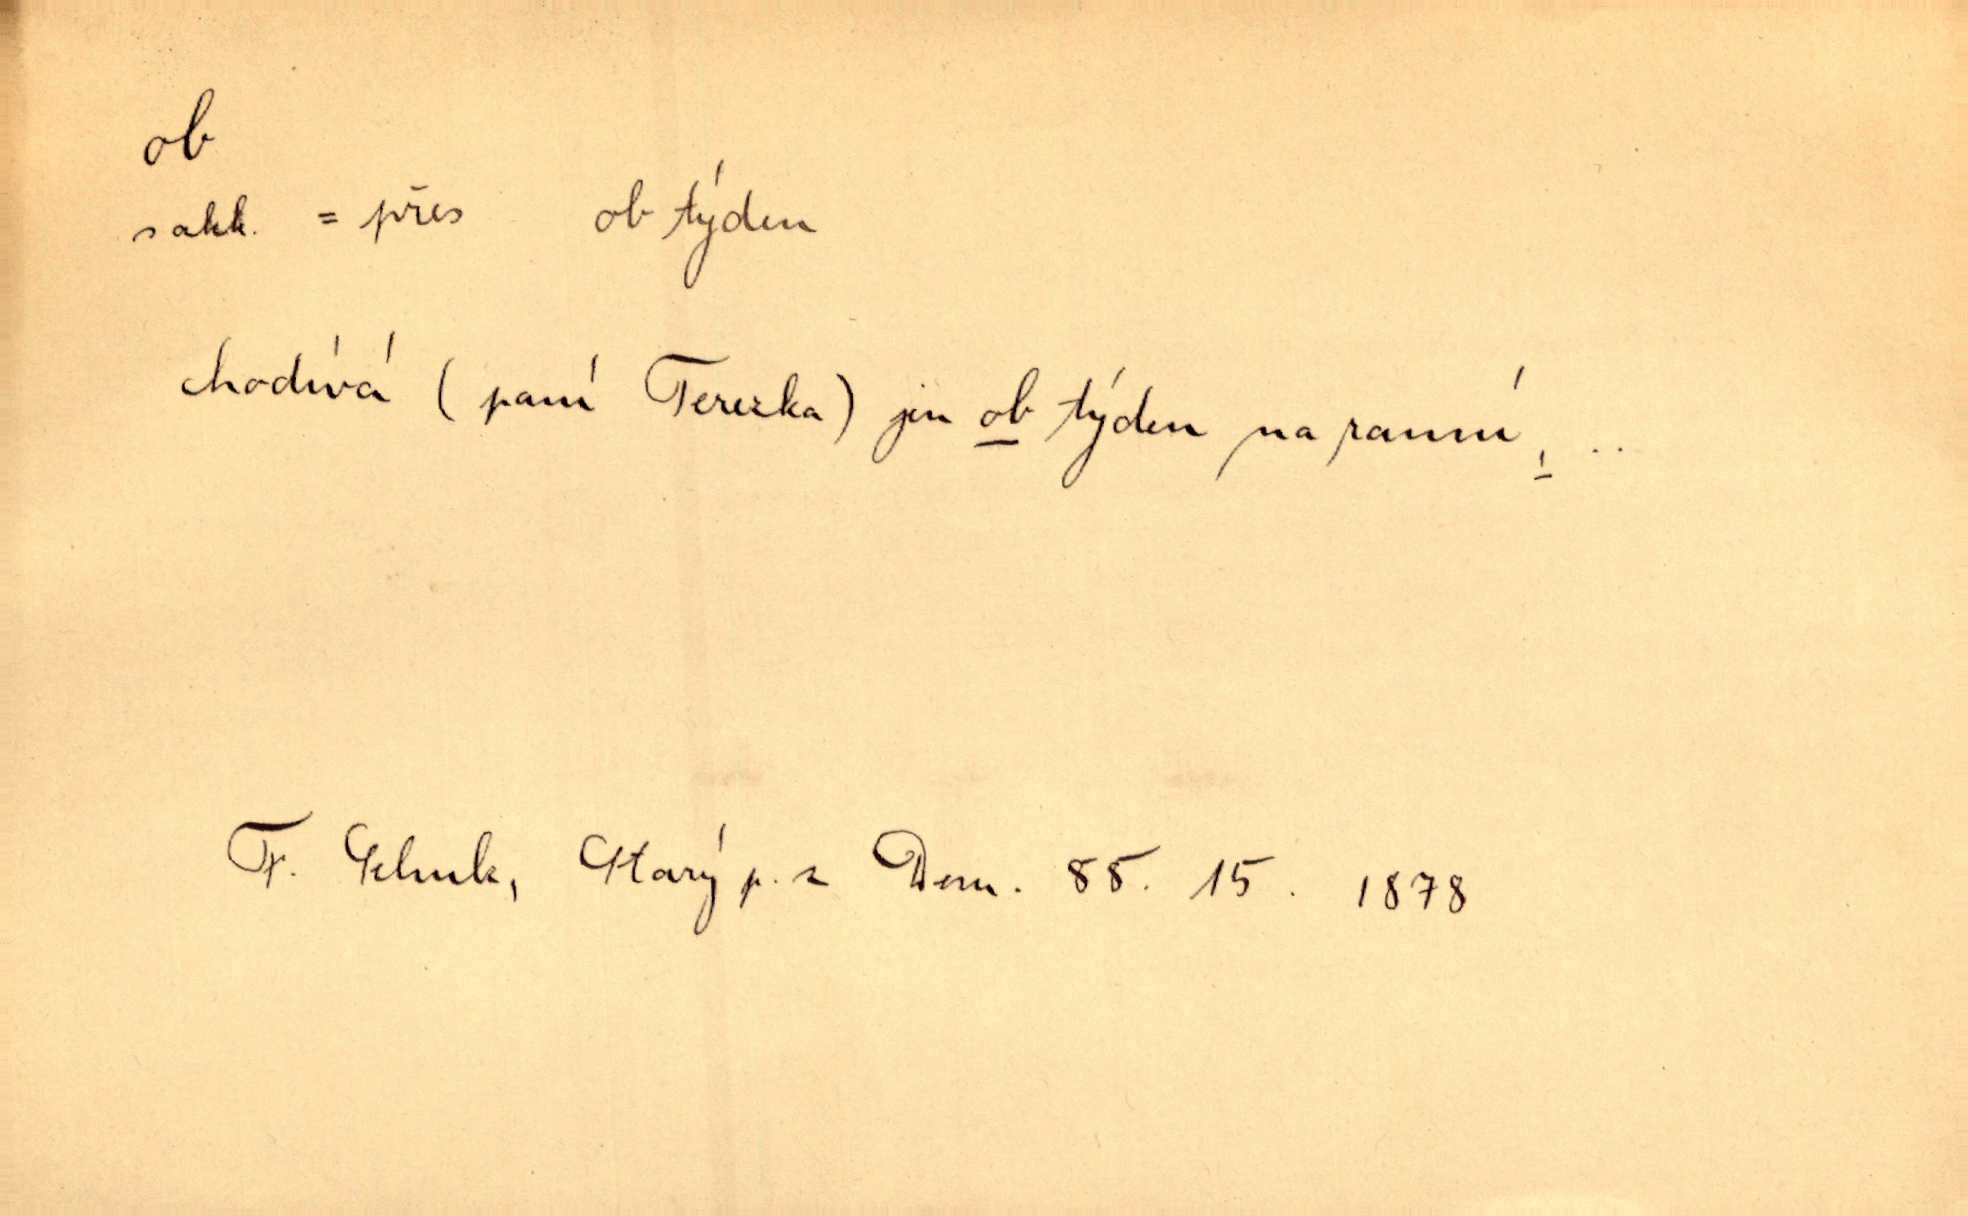 ob
s akk. = přes ob týden
chodívá (paní Terezka) jen ob týden na ranní, ..
F. Starý p. z Dom. 85. 15. 1878